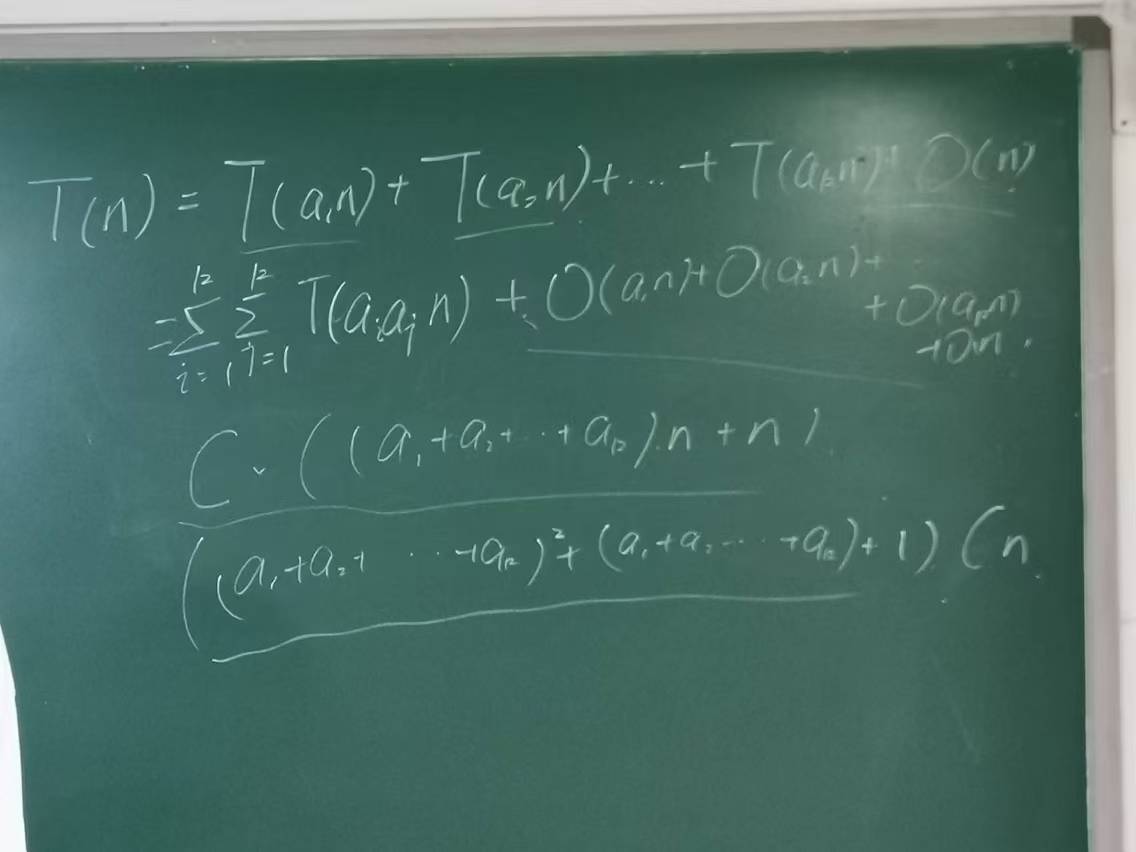 T(n) = T(a₁n) + T(a₂n) + ... + T(aₖn) + O(n)
= Σᵢ₌₁ᵏ Σⱼ₌₁ᵏ T(aᵢaⱼn) + O(a₁n) + O(a₂n) + ...
+ O(aₖn)
+ O(n).
C · ((a₁ + a₂ + ... + aₖ).n + n)
((a₁ + a₂ + ... + aₖ)² + (a₁ + a₂ ... + aₖ) + 1) Cn